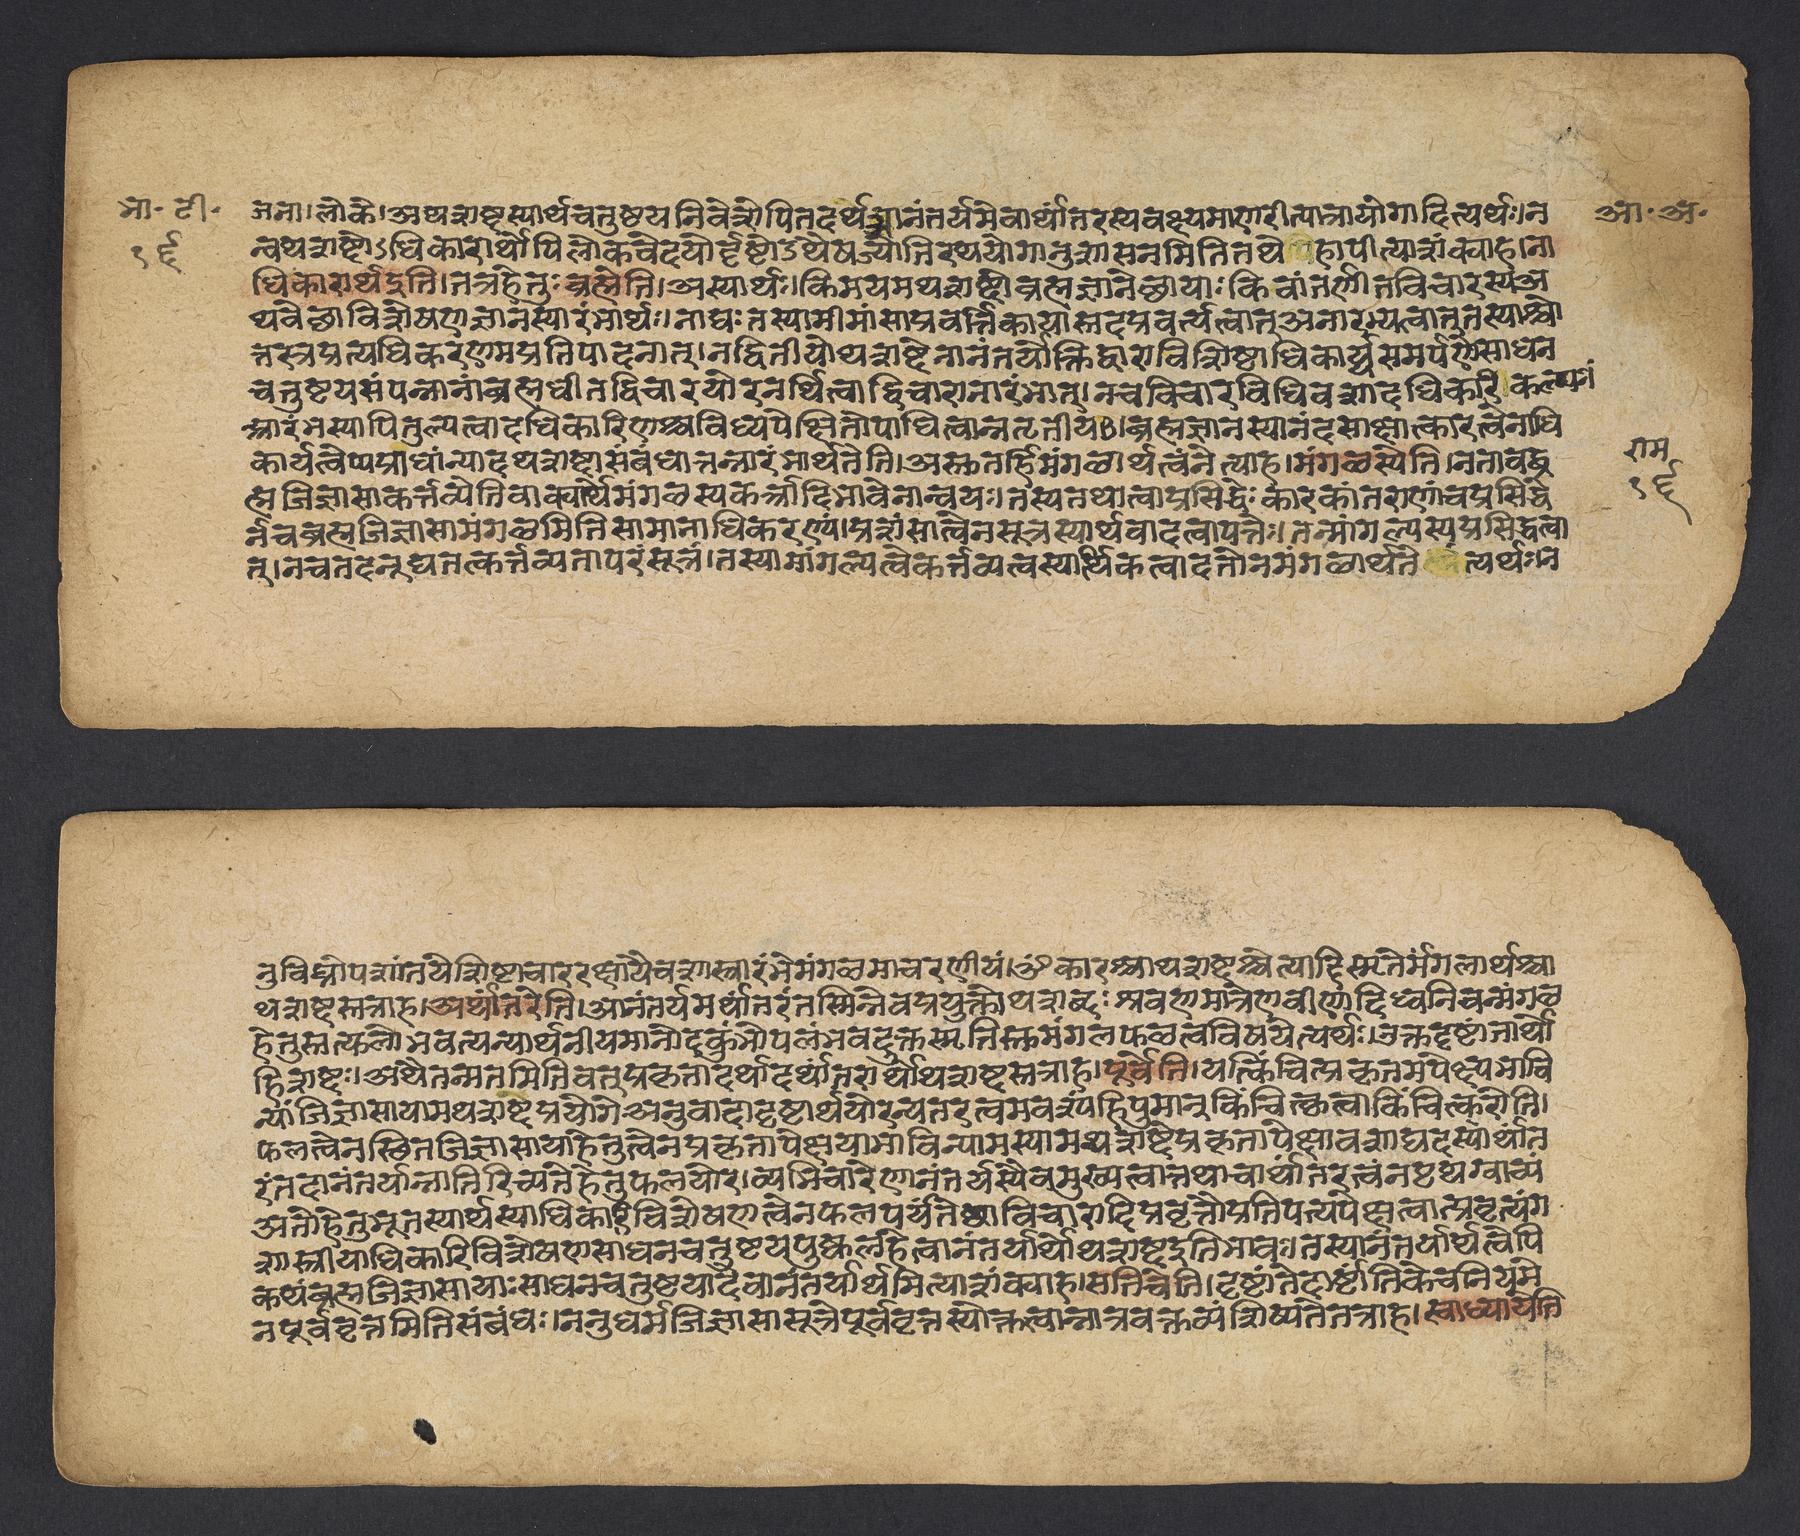 भा. टी.
१६
आ. अ.
जना। लोके। अथशब्दस्यार्थचतुष्टयनिवेशेपितदर्थआनंतर्यमेवार्थांतरस्यवक्ष्यमाणरीत्यात्रायोगादित्यर्थः। न
न्वथशब्दोऽधिकारार्थोपिलोकवेदयोर्दृष्टोऽथैषज्योतिरथयोगानुशासनमितितथेहापीत्याशंक्याह। ना
धिकारार्थइति। तत्रहेतुः ब्रह्मेति। अस्यार्थः। किमयमथशब्दोब्रह्मज्ञानेच्छायाः किंवांतर्णीतविचारस्यअ
थवेच्छाविशेषणज्ञानस्यारंभार्थः। नाद्यः तस्यामीमांसाप्रवर्त्तिकायास्तदप्रवर्त्यत्वात् अनारभ्यत्वात्तस्याश्चो
त्तरत्रप्रत्यधिकरणमप्रतिपादनात्। नद्वितीयोथशब्देनानंतर्योक्तिद्वाराविशिष्टाधिकार्यसमर्पणेसाधन
चतुष्टयसंपन्नानांब्रह्मधीतद्विचारयोरनर्थित्वाद्विचारानारंभात्। नचविचारविधिवशादधिकारीकल्प्यः
प्रारंभस्यापितुल्यत्वादधिकारिणश्चविध्यपेक्षितोपाधित्वान्नतृतीयः। ब्रह्मज्ञानस्यानंदसाक्षात्कारत्वेनाधि
कार्यत्वेप्यप्राधांन्यादथशब्दासंबंधात्तन्नारंभार्थतेति। अस्तुतर्हिमंगळार्थत्वंनेत्याह। मंगळस्येति। नतावद्ब्र
ह्मजिज्ञासाकर्त्तव्येतिवाक्यार्थेमंगळस्यकर्त्रादिभावेनान्वयः। तस्यतथात्वाप्रसिद्धेः कारकांतराणांचप्रसिद्धे
र्नचब्रह्मजिज्ञासामंगळमितिसामानाधिकरण्यं। प्रशंसात्वेनसूत्रस्यार्थवादत्वापत्तेः। तन्मांगल्यस्यप्रसिद्धत्वा
त्। नचतदनूद्यतत्कर्त्तव्यतापरंसूत्रं। तस्यामांगल्यत्वेकर्त्तव्यत्वस्यार्थिकत्वादतोनमंगळार्थतेत्यर्थः। न
राम
१६
नुविघ्नोपशांतयेशिष्टाचाररक्षायैचशास्त्रारंभेमंगळमाचरणीयं। ॐकारश्चाथशब्दश्चेत्यादिस्मृतेर्मंगलार्थश्चा
थशब्दस्तत्राह। अर्थांतरेति। आनंतर्यमर्थांतरंतस्मिन्नेवप्रयुक्तोथशब्दः श्रवणमात्रेणवीणादिध्वनिवन्मंगळ
हेतुस्तत्फलोभवत्यन्यार्थनीयमानोदकुंभोपलंभवदुक्तस्मृतिस्तुमंगलफळत्वविषयेत्यर्थः। उक्तदृष्टांतार्थो
हिशब्दः। अथैतन्मतमितिवत्प्रकृतादर्थादर्थांतरार्थोथशब्दस्तत्राह। पूर्वेति। यत्किंचित्प्रकृतमपेक्ष्यभावि
न्यांजिज्ञासायामथशब्दप्रयोगेअनुवादादृष्टार्थयोरन्यतरत्वमवश्यंहिपुमान्किंचित्कृत्वाकिंचित्करोति।
फलत्वेनस्थितजिज्ञासायाहेतुत्वेनप्रकृतापेक्षयाभाविन्यामस्यामथशब्देप्रकृतापेक्षावशाद्यदस्यार्थांत
रंतदानंतर्यान्नातिरिच्यतेहेतुफलयोर। व्यभिचारेणानंतर्यस्यैवमुख्यत्वात्तथाचार्थांतरत्वंनपृथग्वाच्यं
अतोहेतुभूतस्यार्थस्याधिकारिविशेषणत्वेनफलपर्यंतेच्छाविचारादिप्रवृत्तौप्रतिपत्त्यपेक्षत्वात्प्रवृत्त्यंग
शास्त्रीयाधिकारिविशेषणसाधनचतुष्टयपुष्कलहेत्वानंतर्यार्थोथशब्दइतिभावः। तस्यानंतर्यार्थत्वेपि
कथंब्रह्मजिज्ञासायाः साधनचतुष्टयादेवानंतर्यार्थमित्याशंक्याह। सतिचेति। दृष्टांतेदार्ष्टांतिकेचनियमे
नपूर्ववृत्तमितिसंबंधः। ननुधर्मजिज्ञासासूत्रेपूर्ववृत्तस्योक्तत्वान्नात्रवक्तव्यंशिष्यतेतत्राह। स्वाध्यायेति